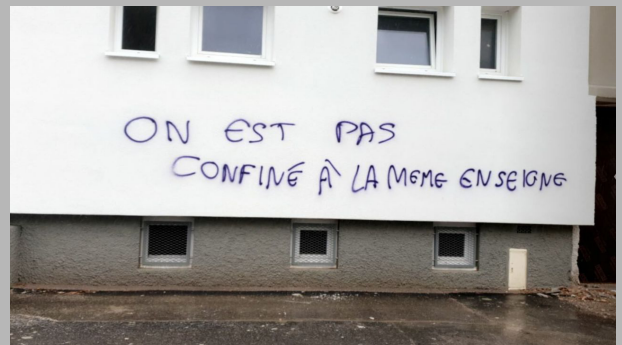 ON EST PAS
CONFINÉ À LA MEME ENSEIGNE